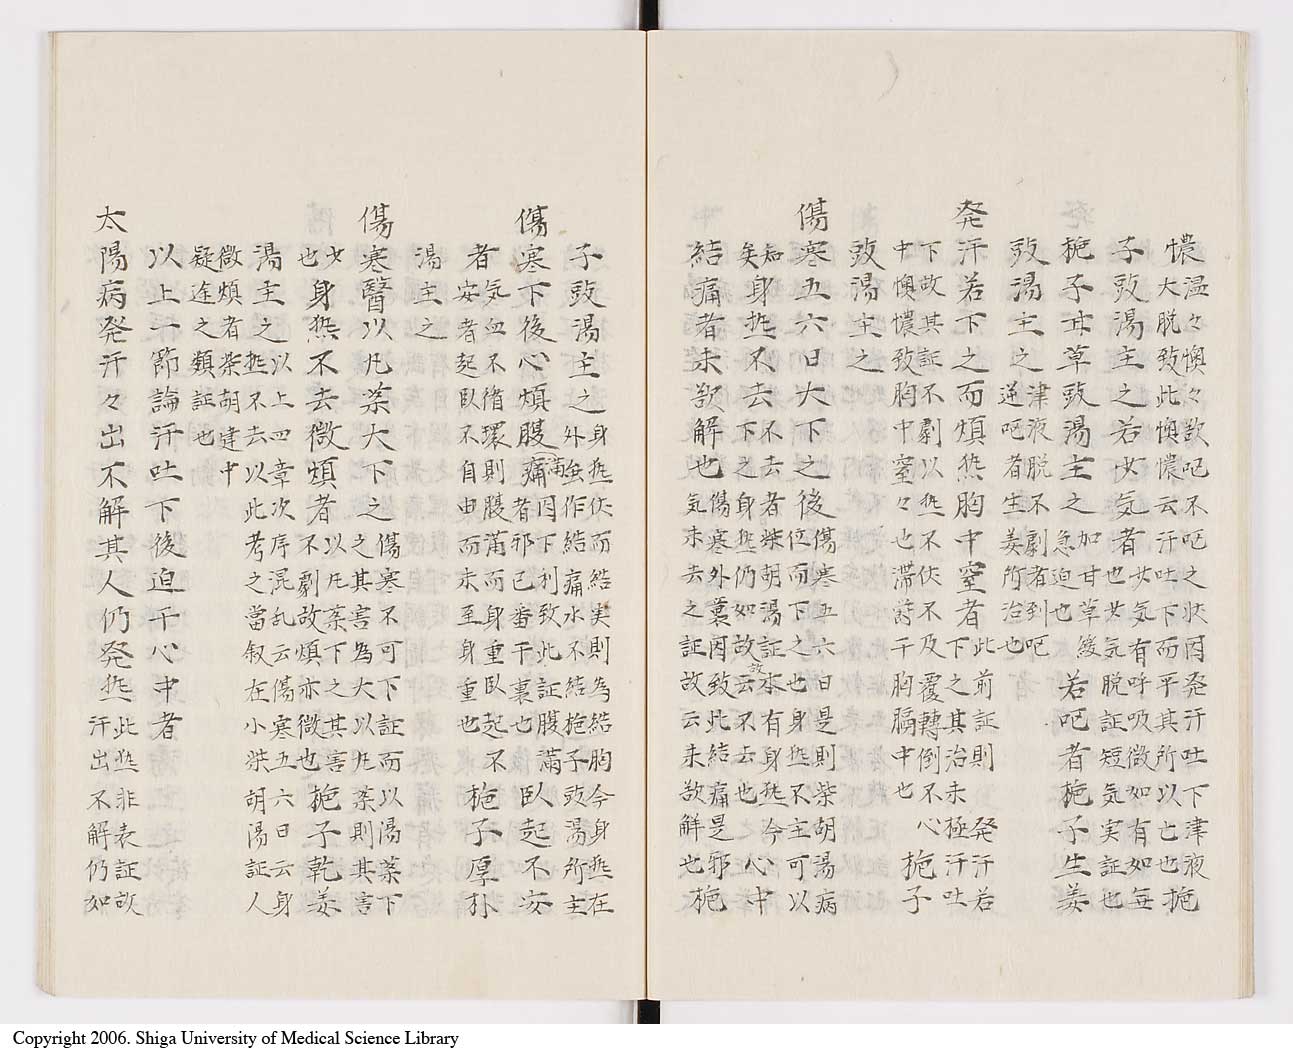 憹温々懊々欲吧不吧之状因発汗吐下津液
大脱致此懊憹云汗吐下而平其所以亡也梔
子豉湯主之若少気者少気有呼吸微如有如無
也少気脱証短気実証也
梔子甘草豉湯主之加甘草緩
急迫也若吧者梔子生姜
豉湯主之津液脱不劇者到吧
逆吧者生姜所治也
発汗若下之而煩熱胸中窒者此前証則発汗若
下之其治未極汗吐
下故其証不劇以熱不伏不及覆轉倒不心
中懊憹致胸中窒々也滞詩于胸膈中也梔子
豉湯主之
傷寒五六日大下之後傷寒五六日是則柴胡湯病
位而下之也身熱不主可以
知
矣身熱不去不去者柴胡湯証本有身熱今
下之身熱仍如故故云不去也心中
結痛者未欲解也傷寒外裏因致此結痛是邪
気未去之証故云未欲解也梔
子豉湯主之身熱伏而結実則為結胸今身熱在
外虽作結痛水不結梔子豉湯所主
傷寒下後心煩腹痛満因下利致此証腹満
者邪已番于裏也臥起不安
者気血不循環則腹満而身重臥起不
安者契臥不自由而未至身重也梔子厚朴
湯主之
傷寒醫以丸薬大下之傷寒不可下証而以湯薬下
之其害為大以丸薬則其害
少
也身熱不去微煩者以丸薬下之其害
不劇故煩亦微也梔子乾姜
湯主之以上四章次序混乱云傷寒五六日云身
熱不去以此考之當叙在小柴胡湯証人
微煩者柴胡建中
疑途之類証也
以上一節論汗吐下後迫于心中者
太陽病発汗々出不解其人仍発熱此熱非表証故
汗出不解仍如
Copyright 2006. Shiga University of Medical Science Library